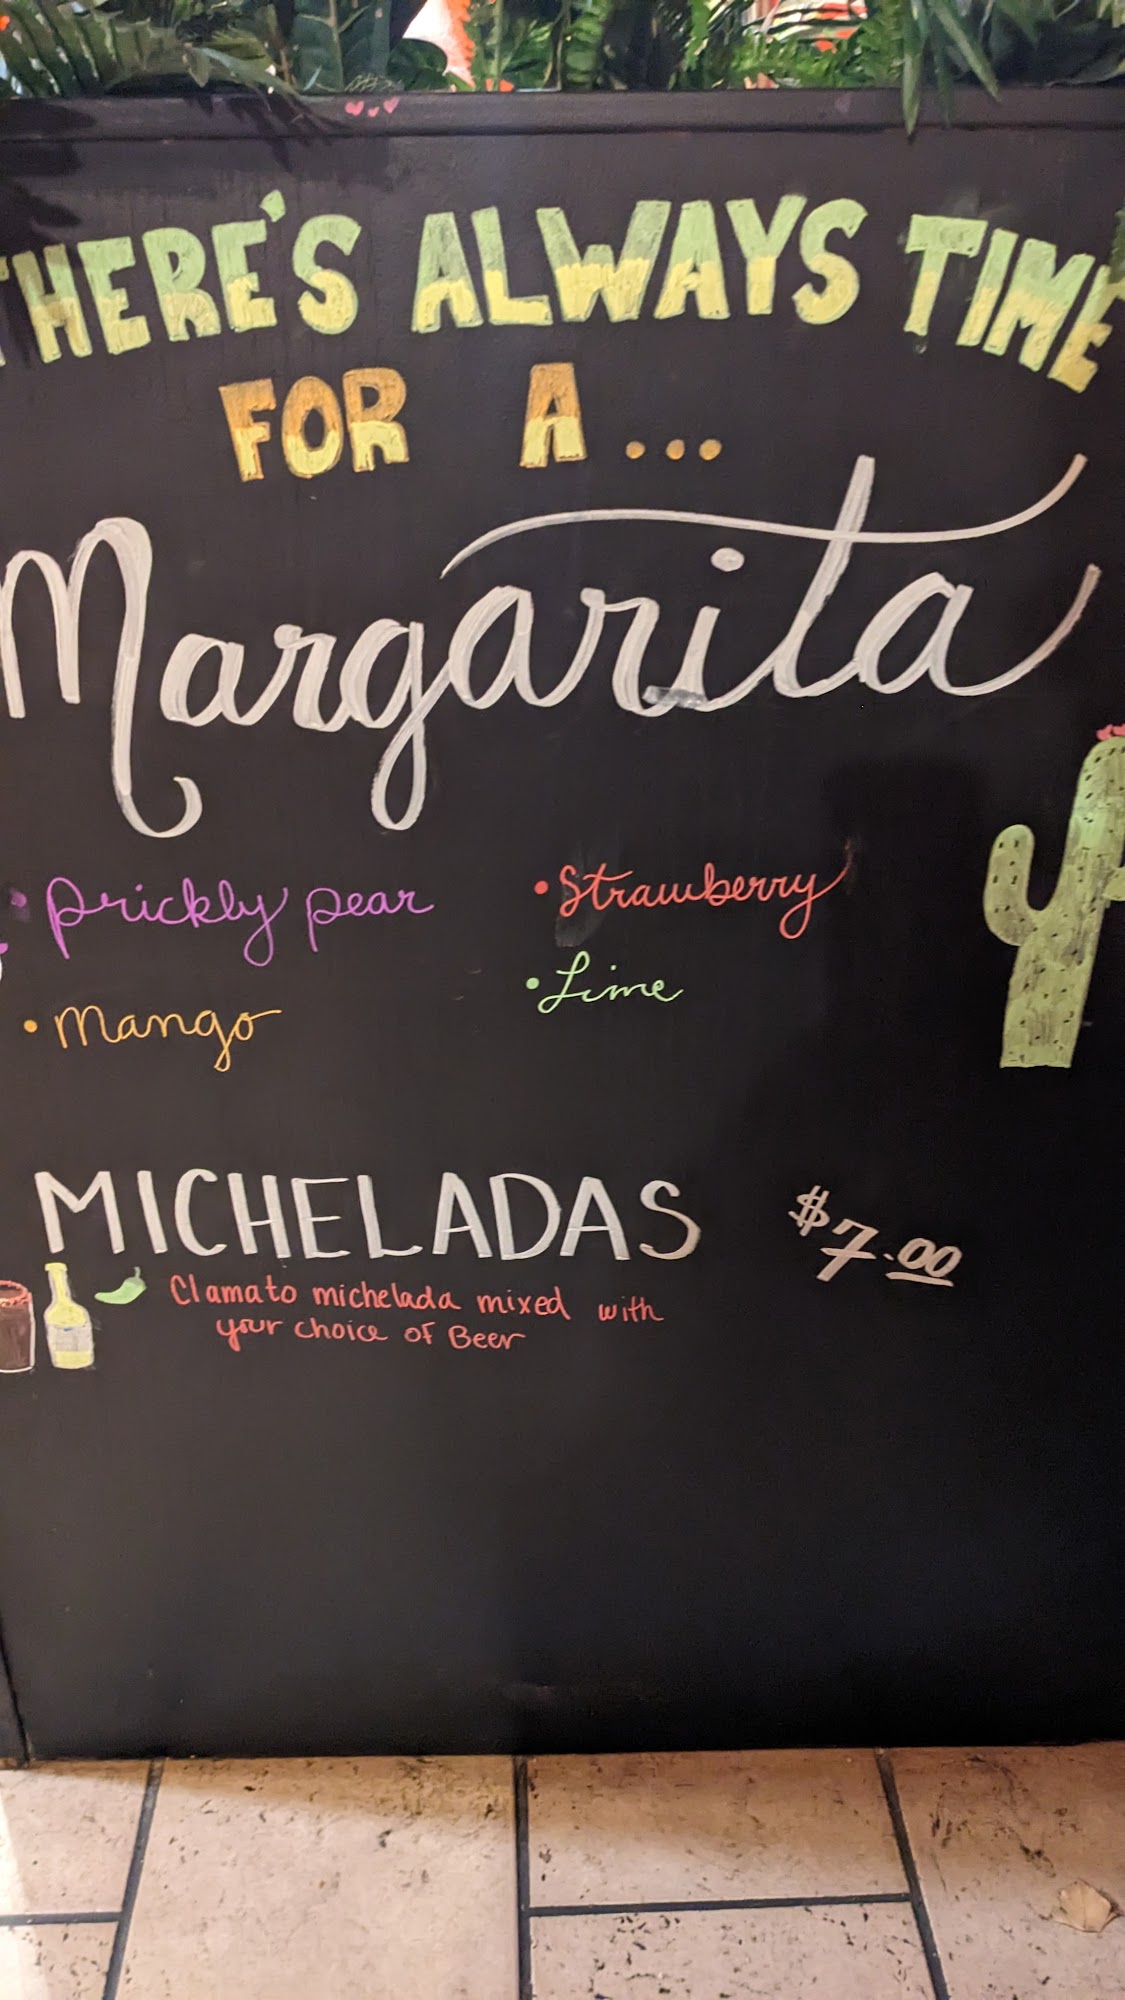 THERE'S ALWAYS TIME
FOR A...
Margarita
• Prickly pear
• Strawberry
• Mango
• Lime
MICHELADAS $7.00
Clamato michelada mixed with
your choice of Beer